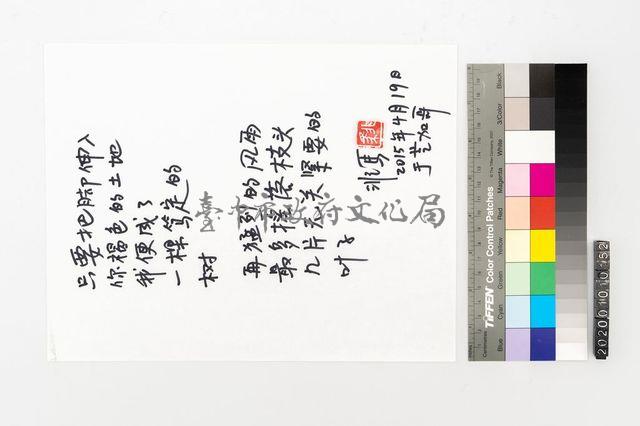 只要把脚伸入
你褐色的土地
我便成了
一棵笃定的
树
再猛烈的风雨
最多摇落枝头
几片无关紧要的
叶子
2015年4月19日
于芝加哥
臺北市政府文化局
TIFFEN Color Control Patches
© The Tiffen Company, 2007
Centimetres
Blue
Cyan
Green
Yellow
Red
Magenta
White
3/Color
Black
2020010152